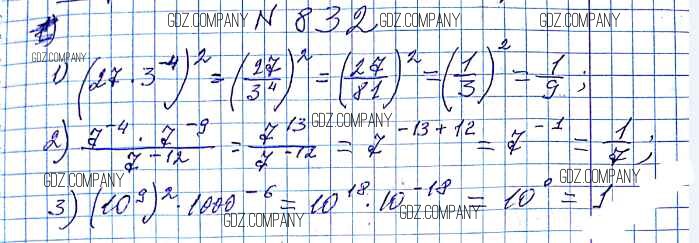 GDZ.COMPANY N 832 GDZ.COMPANY GDZ.COMPANY
GDZ.COMPANY
1) (27 · 3⁻⁴)² = (27/3⁴)² = (27/81)² = (1/3)² = 1/9 ;
GDZ.COMPANY
2) 7⁻⁴ · 7⁻⁹ / 7⁻¹² = 7¹³ / 7⁻¹² = 7⁻¹³⁺¹² = 7⁻¹ = 1/7 ;
GDZ.COMPANY GDZ.COMPANY
3) (10⁹)² · 1000⁻⁶ = 10¹⁸ · 10⁻¹⁸ = 10⁰ = 1
GDZ.COMPANY GDZ.COMPANY